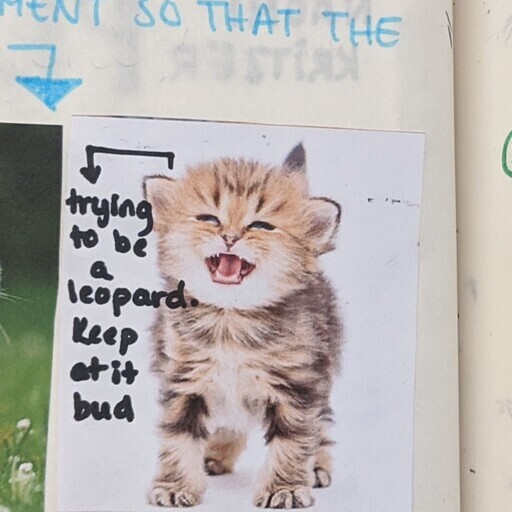 MENT SO THAT THE
trying
to be
a
leopard.
Keep
at it
bud